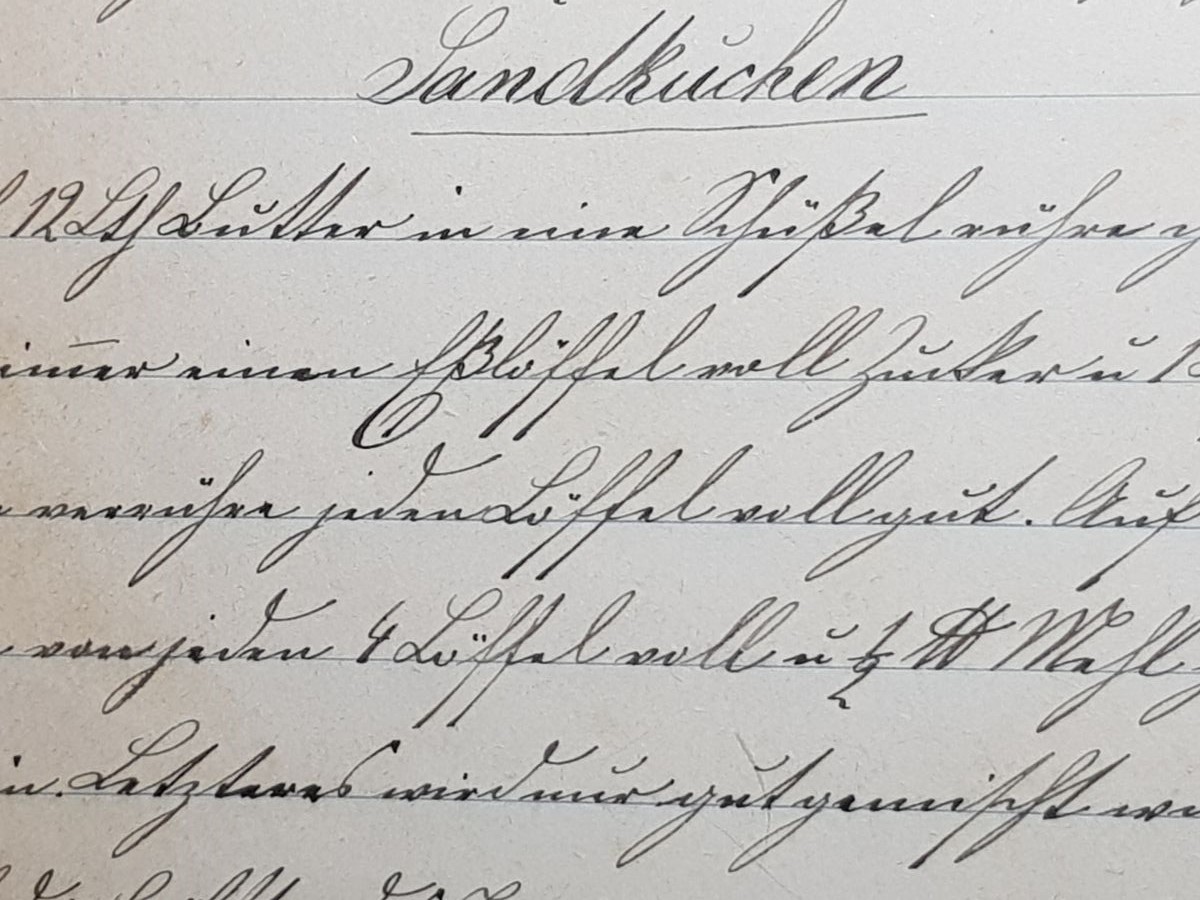 Sandkuchen
12 Lth Butter in eine Schüßel rühre
immer einen Eßlöffel voll Zucker u
verrühre jeden Löffel voll gut. Auf
von jeden 4 Löffel voll u ½ ℔ Mehl
Letzteres wird nur gut gemischt